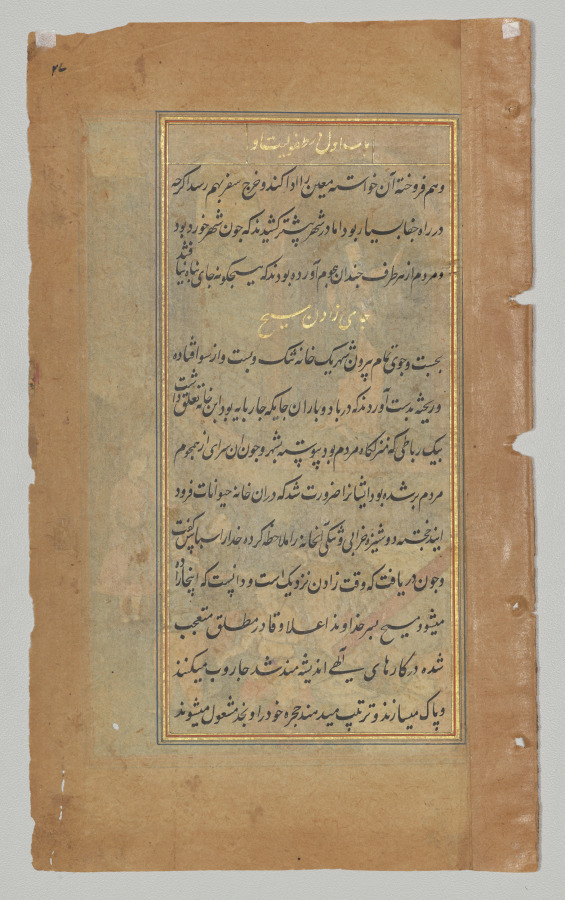 ۴۷
باب اول در طفولیت او
و هم فروخته آن خواسته معین را ادا کند و خرج سفر بهم رسد اگرچه
در راه جفا بسیار بود اما در شهر پیشتر کشیدند که چون شهر خورد بود
و مردم از هر طرف چندان هجوم آورده بودند که هیچگونه جای پناه نیافتند
جای زادن مسیح
بجست و جوی تمام بیرون شهر یک خانه تنک و پست و از سو افتاده
و ریخته بدست آوردند که در باد و باران جایگه چارپایه بود این خانه تعلق داشت
بیک رباطی که منزلگاه مردم بود پیوسته بشهر و چون آن سرای از هجوم
مردم پر شده بود ایشانرا ضرورت شد که در ان خانه حیوانات فرود
آیند خجسته دوشیزه خرابی و تنکی آنخانه را ملاحظه کرده خدا را سپاس گفت
و چون دریافت که وقت زادن نزدیک است و دانست که اینجا زاده
میشود مسیح پسر خداوند اعلا و قادر مطلق متعجب
شده در کارهای الهی اندیشه مند شد جاروب میکنند
و پاک میسازند و ترتیب میدهند حجره خود را و بخود مشغول میشوند